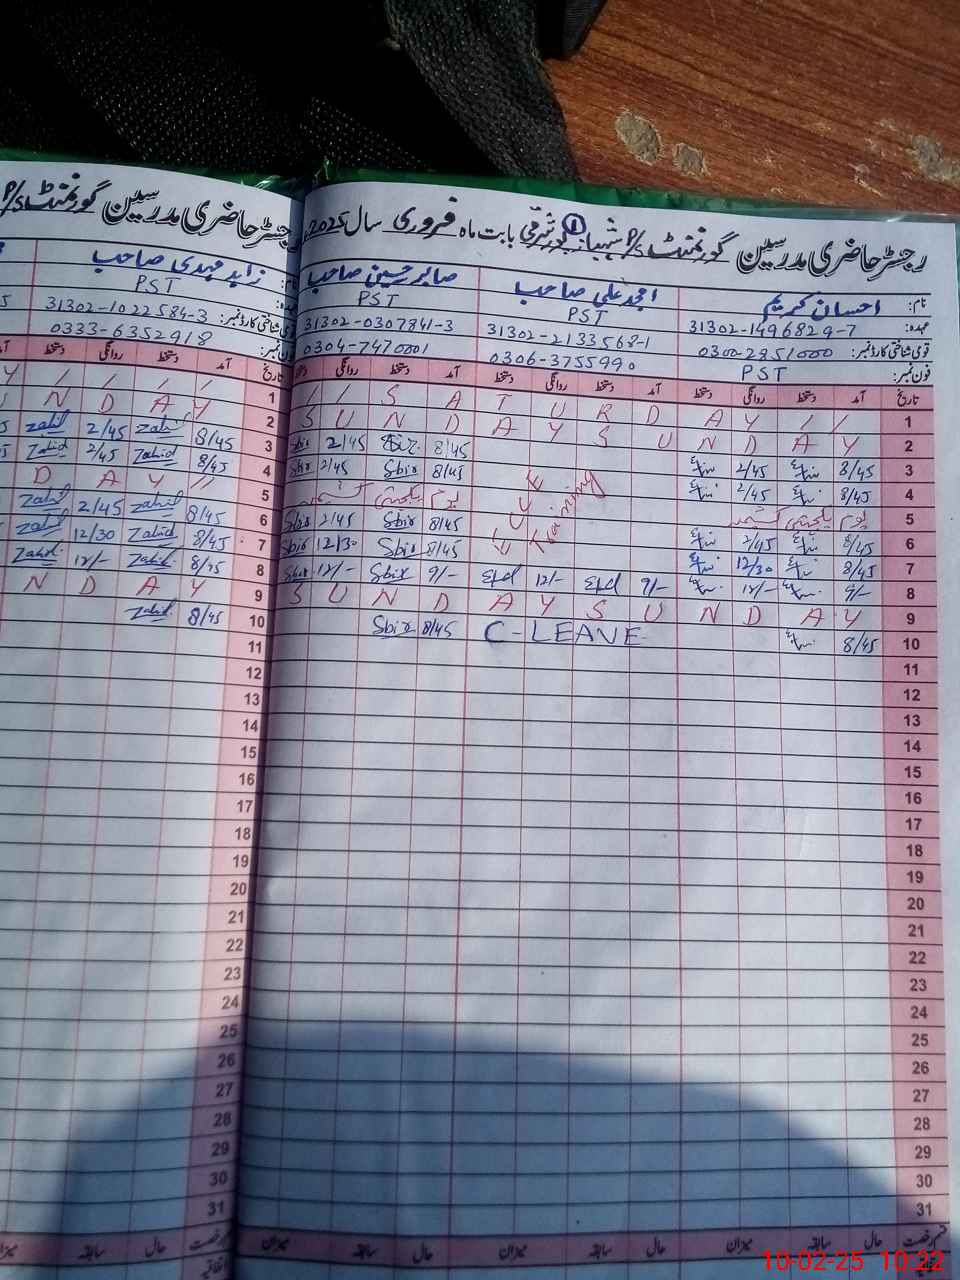 رجسٹر حاضری مدرسین گورنمنٹ P/S شہباز پور شرقی 1 بابت ماہ فروری سال 2025
نام: احسان کریم امجد علی صاحب صابر حسین صاحب
عہدہ: PST PST
قومی شناختی کارڈ نمبر: 31302-1496829-7 31302-2133568-1 31302-0307841-3
فون نمبر: 0300-2951000 0306-3755990 0304-7470001
PST
تاریخ آمد دستخط روانگی دستخط آمد دستخط روانگی دستخط آمد دستخط روانگی
1 S A T U R D A Y
2 S U N D A Y S U N D A Y
3 8/45 2/45 8/45 Sbir 2/45 Sbir
4 8/45 2/45 8/45 Sbir 2/45 Sbir
5 یوم یکجہتی کشمیر یوم یکجہتی کشمیر
6 8/45 2/45 8/45 Sbir 2/45 Sbir
7 8/45 12/30 8/45 Sbir 12/30 Sbir
8 9/- 12/- 9/- 12/- 9/- Sbir 12/- Sbir
Training
9 S U N D A Y S U N D A Y
10 8/45 C-LEAVE 8/45 Sbir
11
12
13
14
15
16
17
18
19
20
21
22
23
24
25
26
27
28
29
30
31
قسم رخصت حال سابقہ میزان حال سابقہ میزان
رجسٹر حاضری مدرسین گورنمنٹ P/S
زاہد مہدی صاحب
PST
31302-1022584-3
0333-6352918
تاریخ آمد دستخط روانگی دستخط
1
2 N D A Y
3 8/45 Zahid 2/45 Zahid
4 8/45 Zahid 2/45 Zahid
5 D A Y
6 8/45 Zahid 2/45 Zahid
7 8/45 Zahid 12/30 Zahid
8 8/45 Zahid 12/- Zahid
9 N D A Y
10 8/45 Zahid
11
12
13
14
15
16
17
18
19
20
21
22
23
24
25
26
27
28
29
30
31
قسم رخصت حال سابقہ میزان
10-02-25 10:22